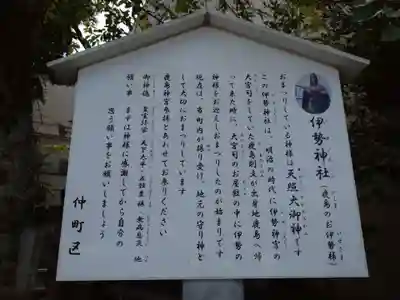 伊勢神社（鹿島のお伊勢様）
おまつりしている神様は天照大御神です
この伊勢神社は、明治の時代に伊勢神宮の
大宮司をしていた鹿島則文が出身地鹿島へ帰
って来た時に、大宮司のお屋敷の中に伊勢の
神様をお迎えしおまつりしたのが始まりです
現在は、市町内が譲り受け、地元の守り神と
して大切におまつりしています
鹿島神宮参拝とあわせてお参りください
御神徳 皇室弥栄 天下太平 五穀豊穣
願い事 まずは神様に感謝してから自分の
思う願い事をお願いしましょう
仲町区